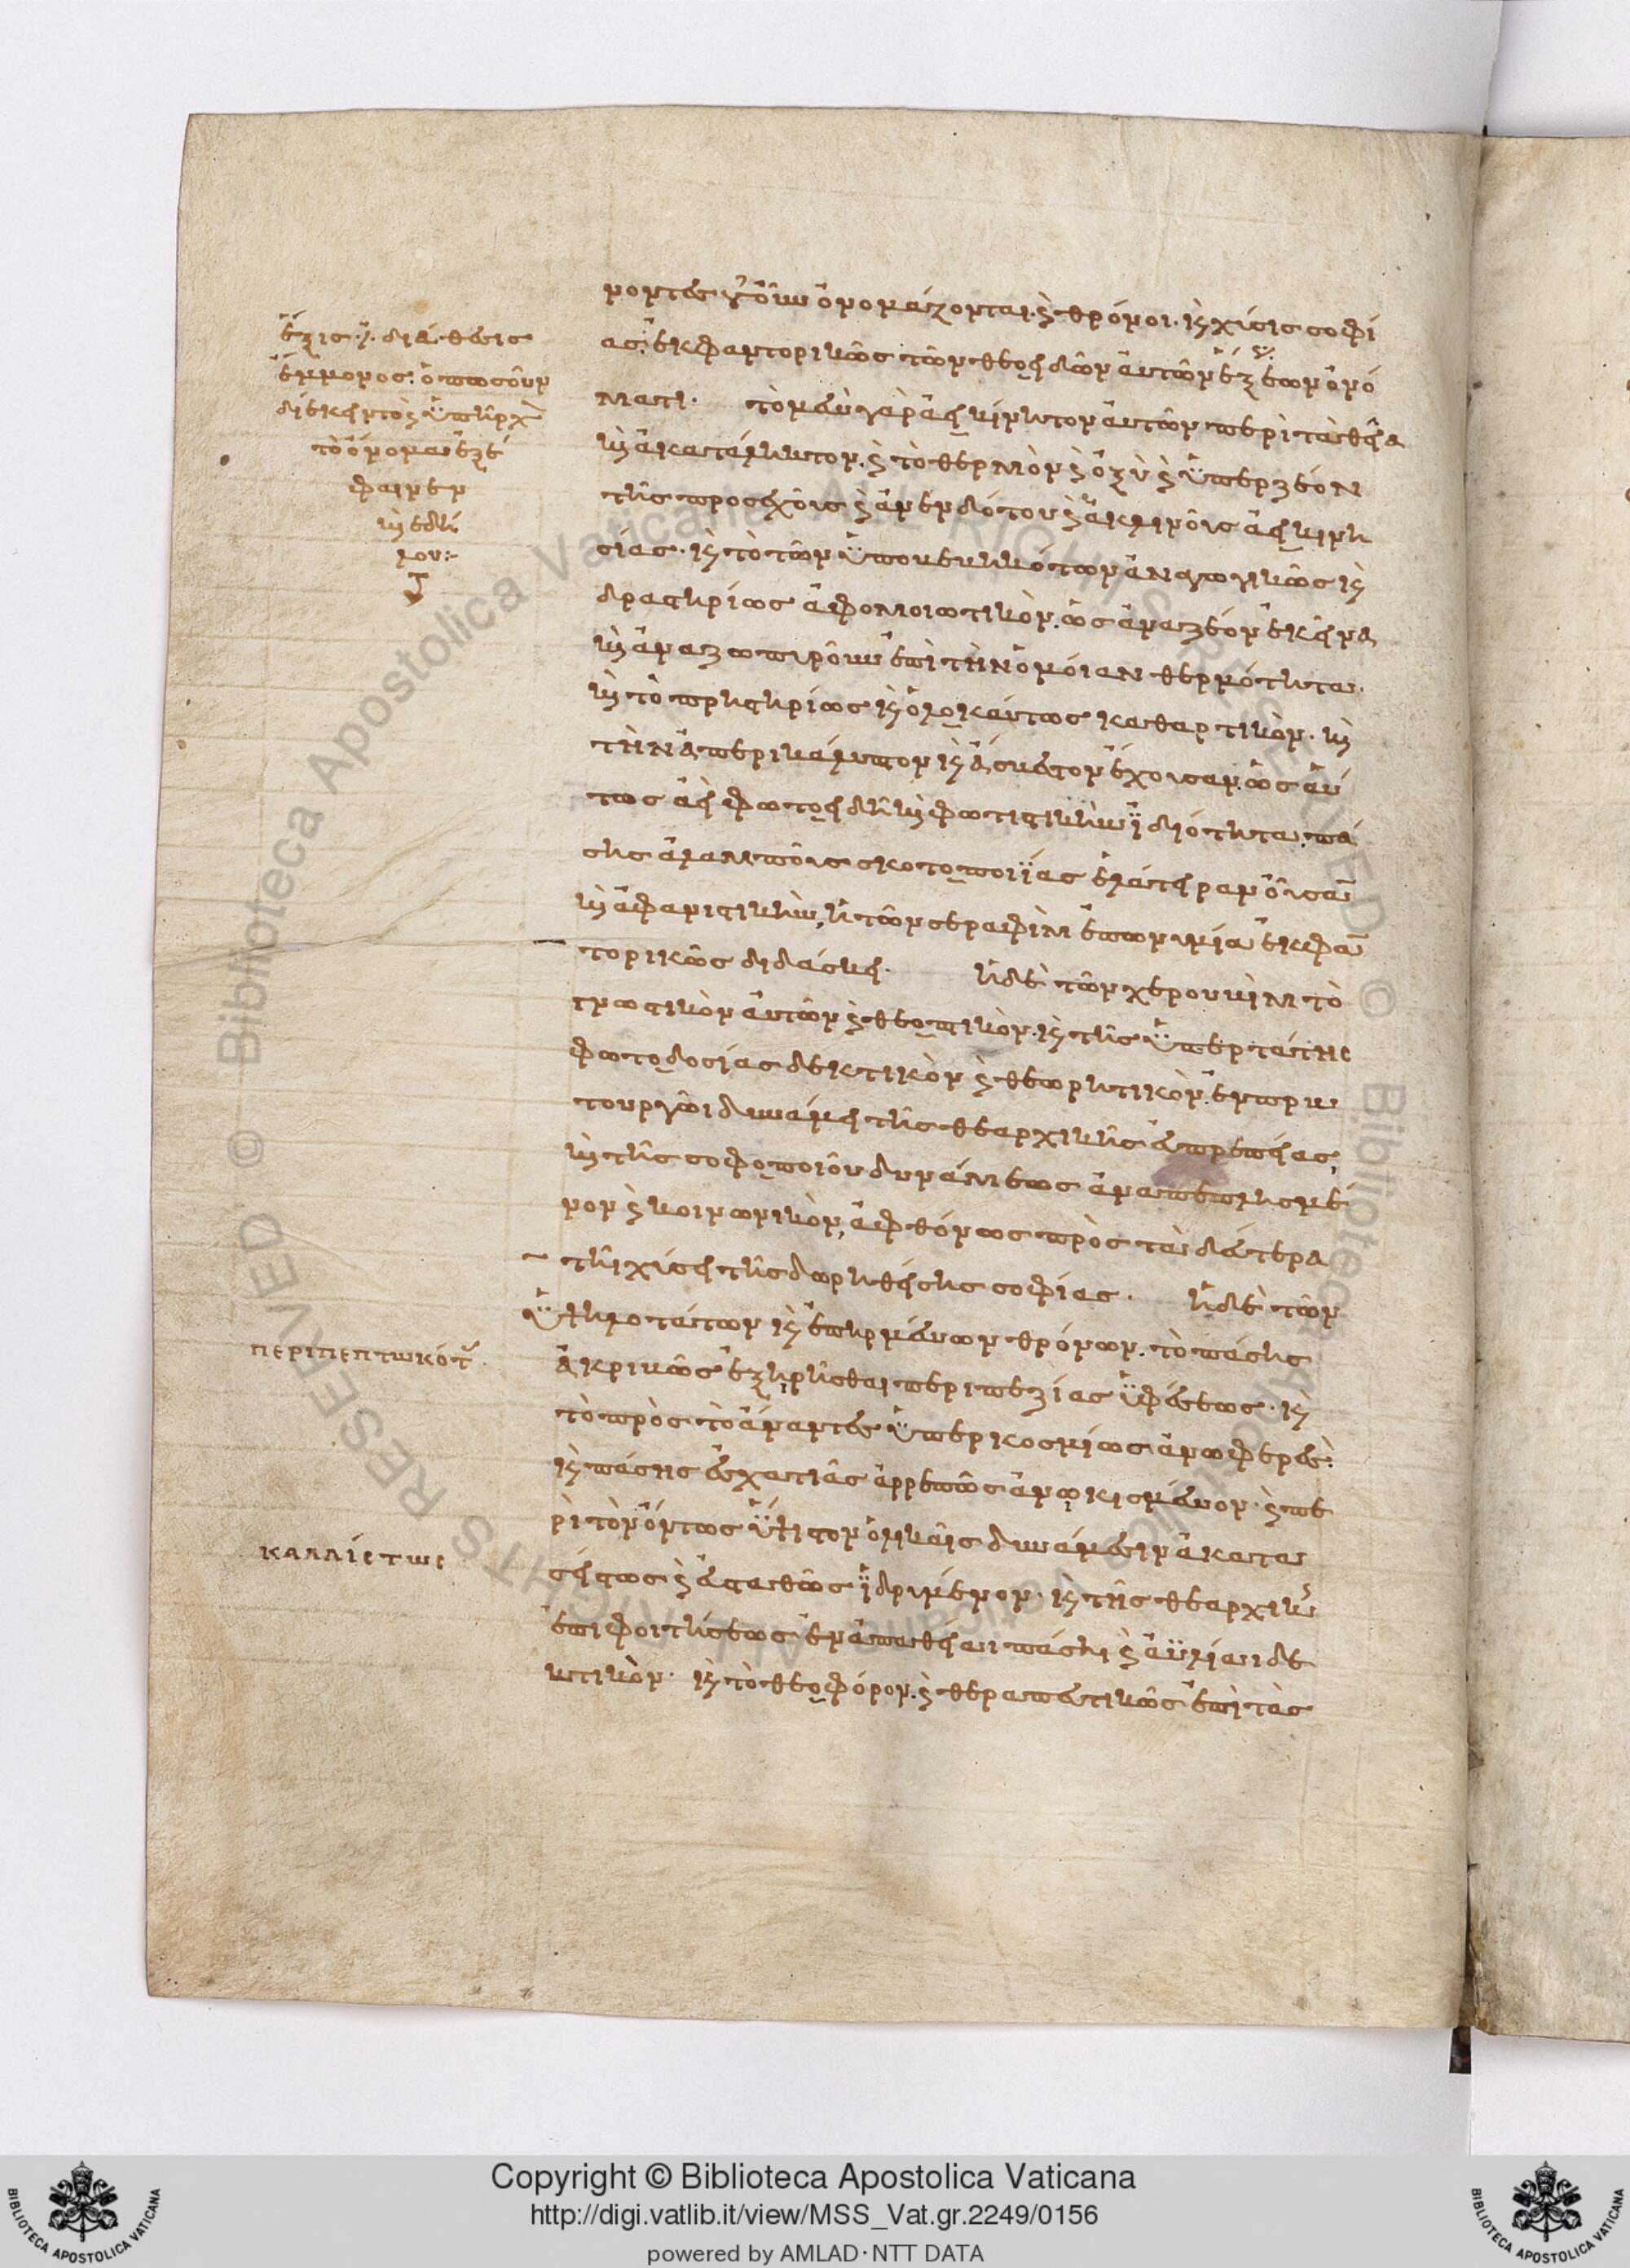 νοντες γοῦν ὀνομάζονται· καὶ θρόνοι· καὶ χύσις σοφί
ας· ἐκφαντορικῶς τῶν θεοειδῶν αὐτῶν ἕξεων ὀνό
ματι· τὸ μὲν γὰρ ἀεικίνητον αὐτῶν περὶ τὰ θεῖα
καὶ ἀκατάληκτον· καὶ τὸ θερμὸν καὶ ὀξὺ καὶ ὑπερζέον
τῆς προσεχοῦς καὶ ἀνενδότου καὶ ἀκλινοῦς ἀεικινη
σίας· καὶ τὸ τῶν ὑποβεβηκότων ἀναγωγικῶς καὶ
δραστηρίως ἀφομοιωτικὸν· ὡς ἀναζέον ἐκεῖνα
καὶ ἀναζωπυροῦν ἐπὶ τὴν ὁμοίαν θερμότητα·
καὶ τὸ πρηστηρίως καὶ ὁλοκαύτως καθαρτικόν· καὶ
τὴν ἀπερικάλυπτον καὶ ἄσβεστον ἔχουσαν ὡσαύ
τως ἀεὶ φωτοειδῆ καὶ φωτιστικὴν ἰδιότητα· πά
σης ἀλαμποῦς σκοτοποιΐας ἐλάτειραν οὖσαν
καὶ ἀφανιστικὴν, ἡ τῶν σεραφὶμ ἐπωνυμία ἐκφαν
τορικῶς διδάσκει· ἡ δὲ τῶν χερουβὶμ τὸ
γνωστικὸν αὐτῶν καὶ θεοπτικὸν· καὶ τῆς ὑπερτάτης
φωτοδοσίας δεκτικὸν καὶ θεωρητικὸν· ἐν πρω
τουργῶι δυνάμει τῆς θεαρχικῆς εὐπρεπείας,
καὶ τῆς σοφοποιοῦ δυνάμεως ἀναπεπλησμέ
νον καὶ κοινωνικὸν, ἀφθόνως πρὸς τὰ δεύτερα
τῆι χύσει τῆς δωρηθείσης σοφίας· ἡ δὲ τῶν
ὑψηλοτάτων καὶ ἐπηρμένων θρόνων· τὸ πάσης
ἀκρινῶς ἐξηιρῆσθαι περιπεζίας ὑφέσεως· καὶ
τὸ πρὸς τὸ ἄναντες ὑπερκοσμίως ἀνωφερές·
καὶ πάσης ἐσχατιᾶς ἀρρεπῶς ἀνῳκισμένον· καὶ πε
ρὶ τὸν ὄντως ὕψιστον ὁλικαῖς δυνάμεσιν ἀκατα
σείστως καὶ εὐσταθῶς ἱδρυμένον· καὶ τῆς θεαρχικῆς
ἐπιφοιτήσεως ἐν ἀπαθείαι πάσηι καὶ ἀϋλίαι δε
κτικόν· καὶ τὸ θεοφόρον· καὶ θεραπευτικῶς ἐπὶ τὰς
ἕξις· ἡ διάθεσις
ἔμμονος· ὁ πῶς οὖν
περιπεπτωκότ
καλλίστως
Copyright © Biblioteca Apostolica Vaticana
http://digi.vatlib.it/view/MSS_Vat.gr.2249/0156
powered by AMLAD·NTT DATA